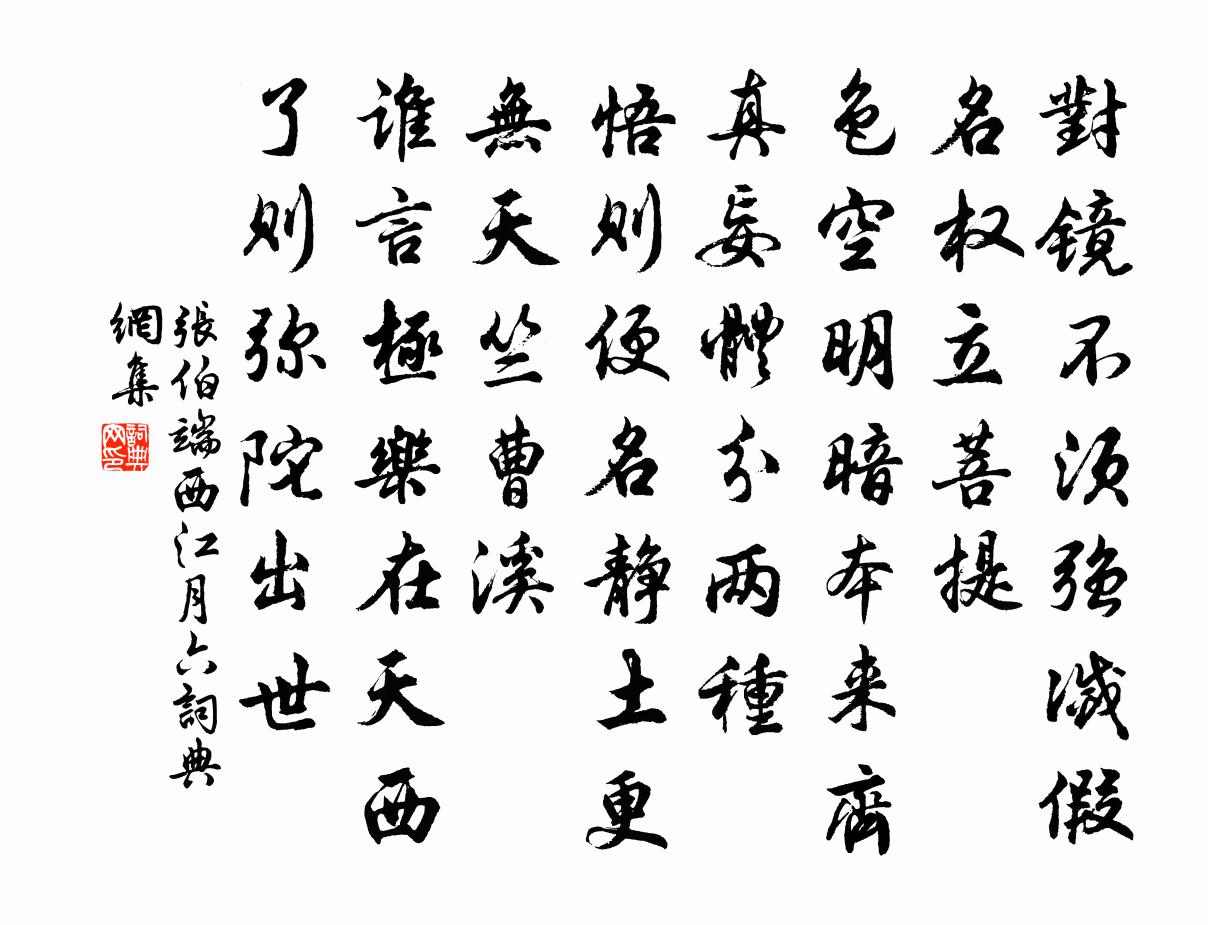 對镜不须強滅假
名权立菩提
色空明暗本来齊
真妄體分两種
悟则便名静土更
無天竺曹溪
谁言極樂在天西
了则弥陀出世
張伯端西江月六詞典
網集
詞典網印